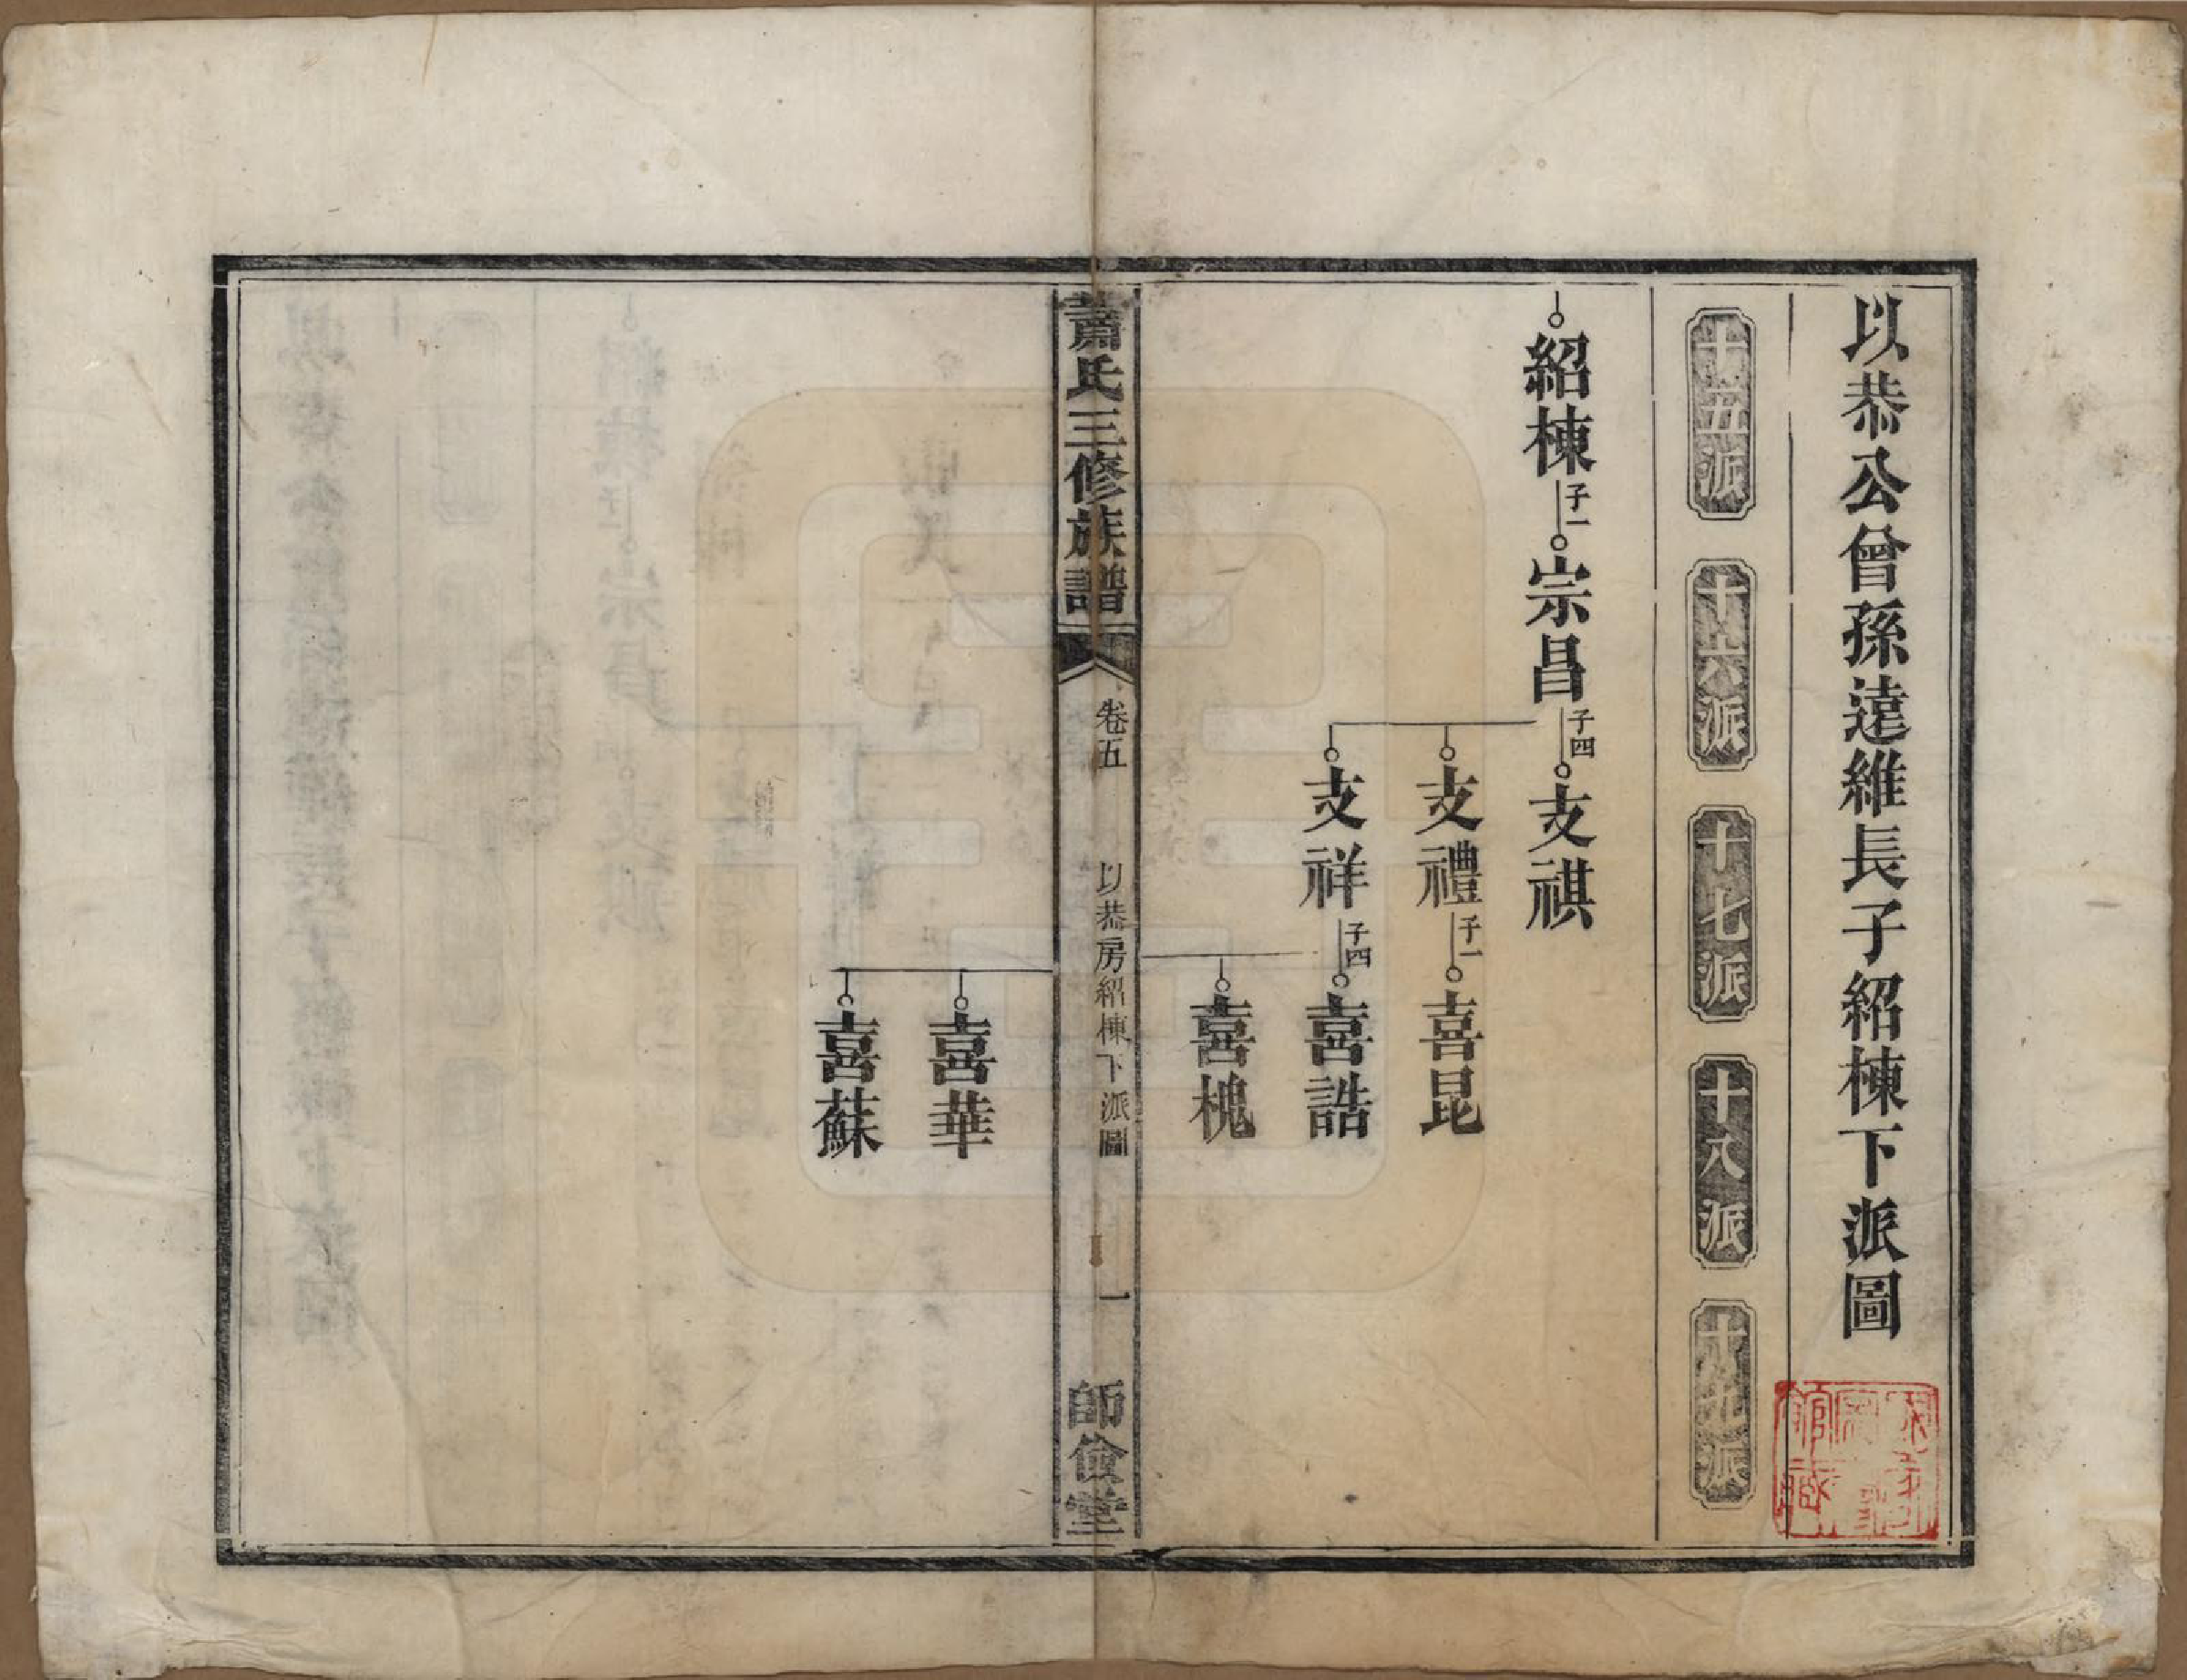 以恭公曾孫遠維長子紹棟下派圖
十五派
十六派
十七派
十八派
十九派
紹棟
子一
宗昌
子四
支祺
支禮
子一
喜昆
支祥
子四
喜誥
喜槐
蕭氏三修族譜
卷五
以恭房紹棟下派圖
一
師儉堂
喜華
喜蘇